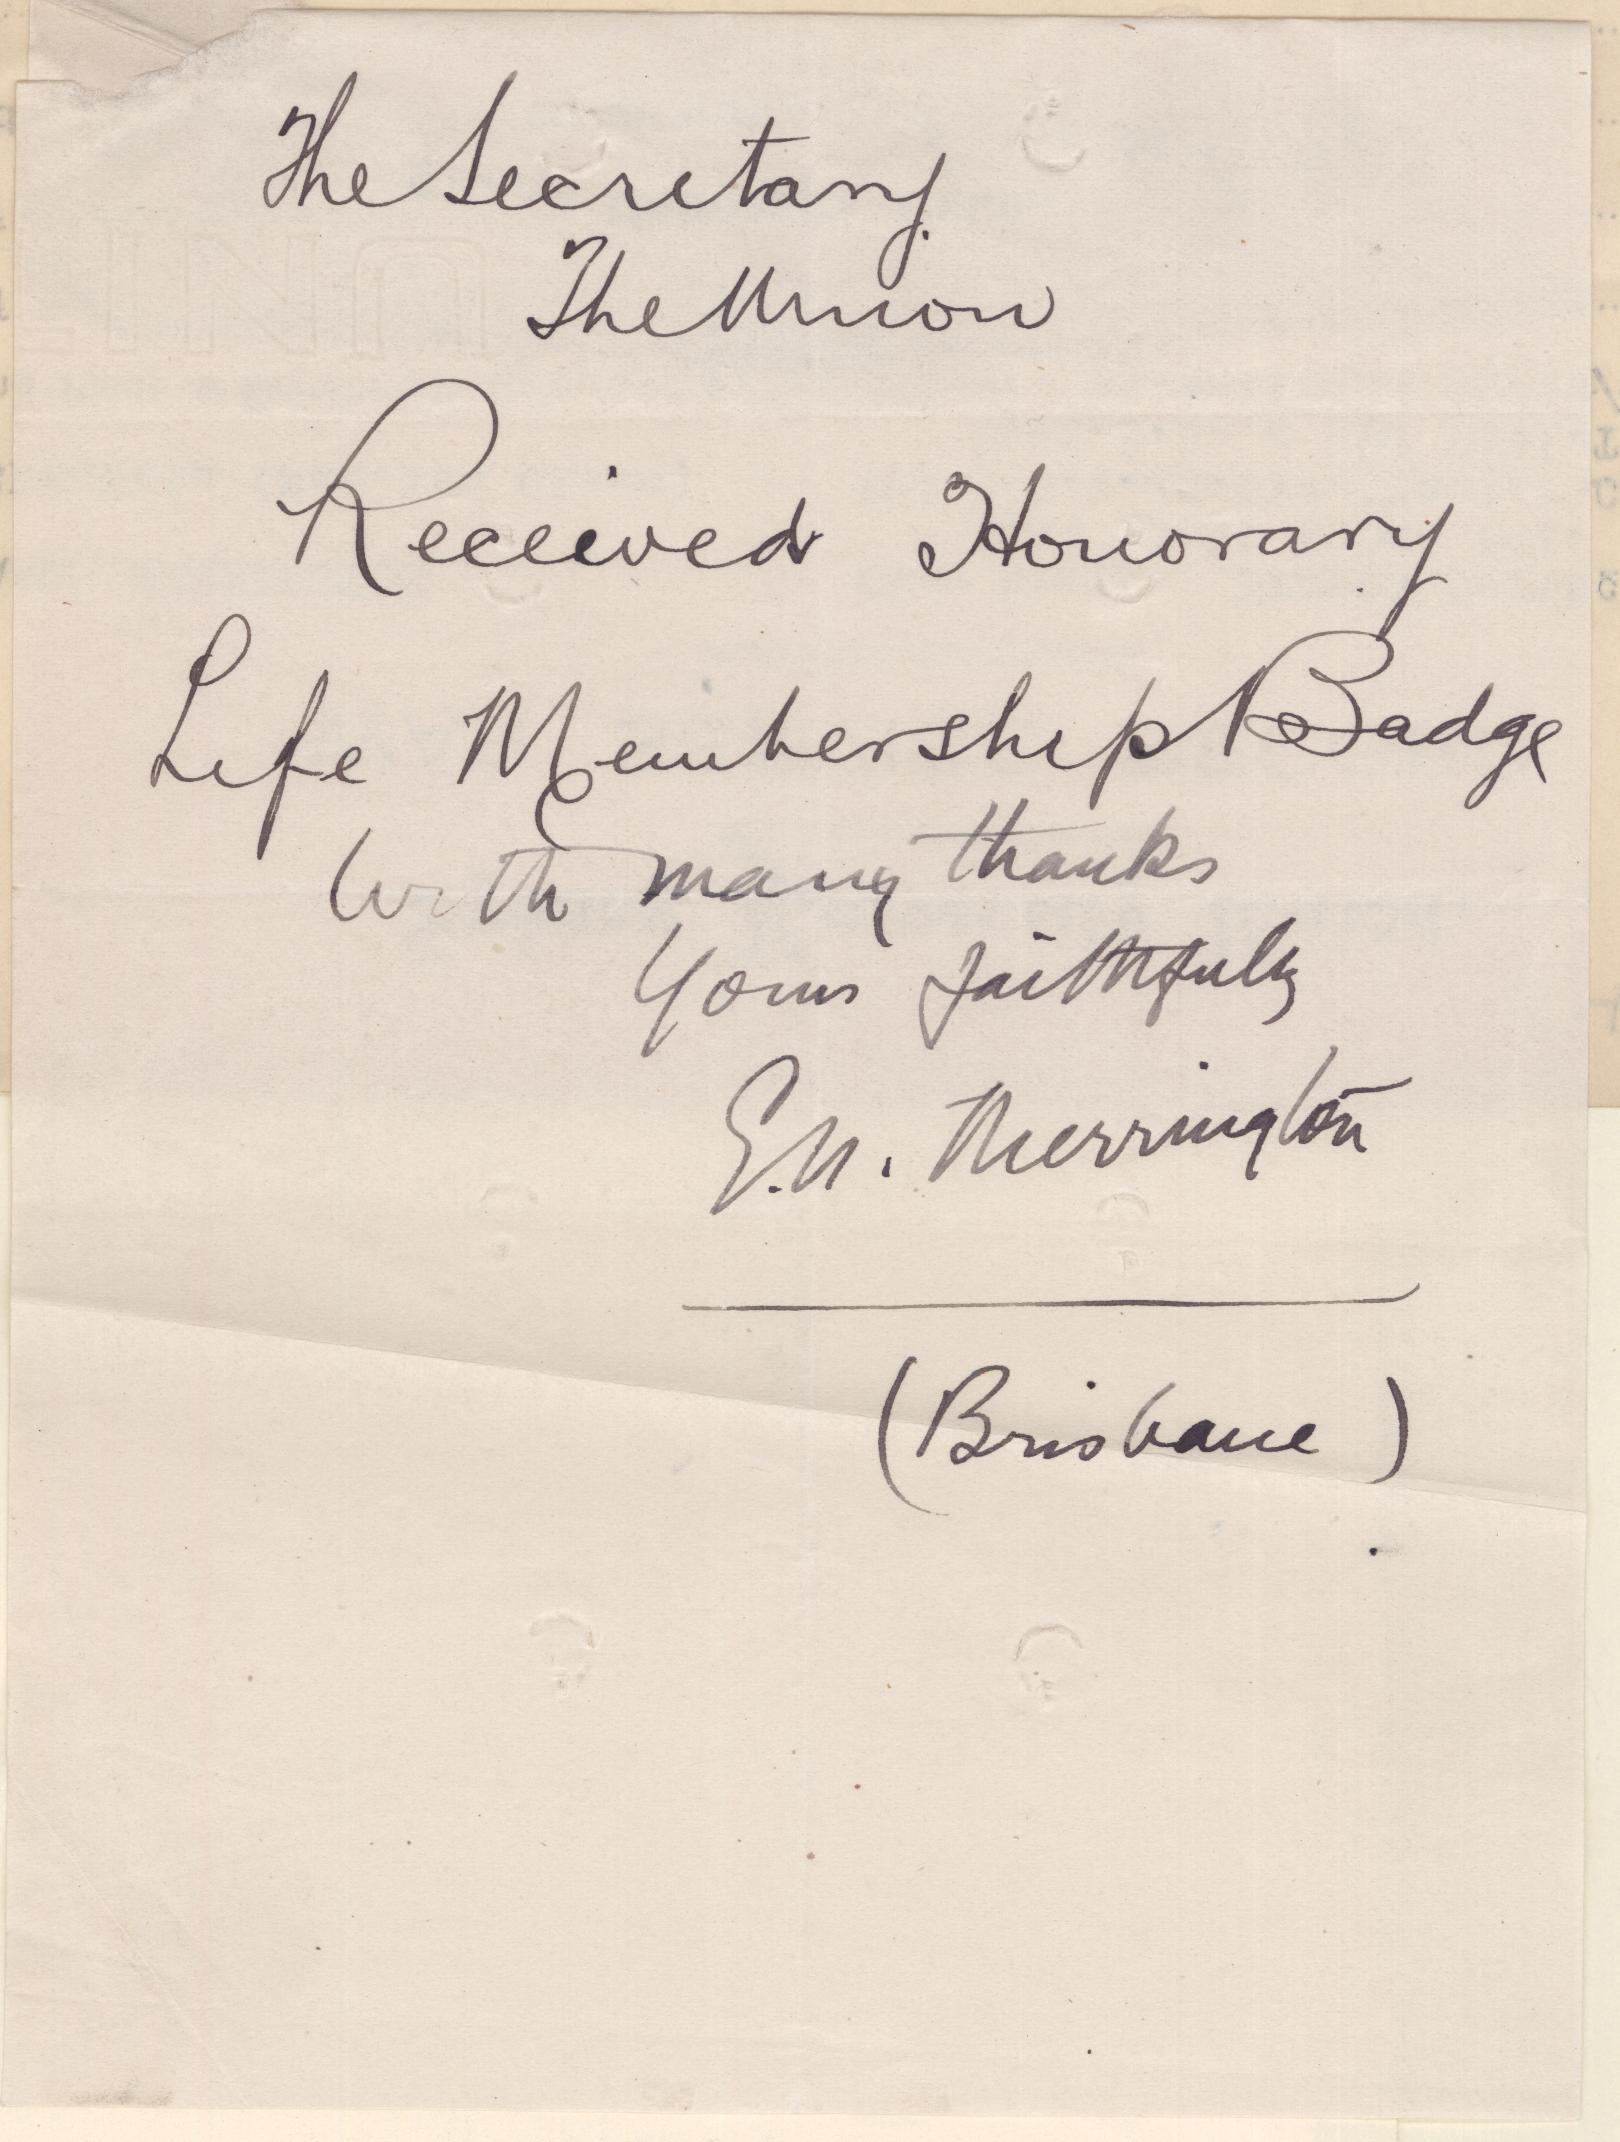 The Secretary.
The Union
Received Honorary
Life Membership Badge
With many thanks
Yours faithfully
E.N. Merrington
(Brisbane)